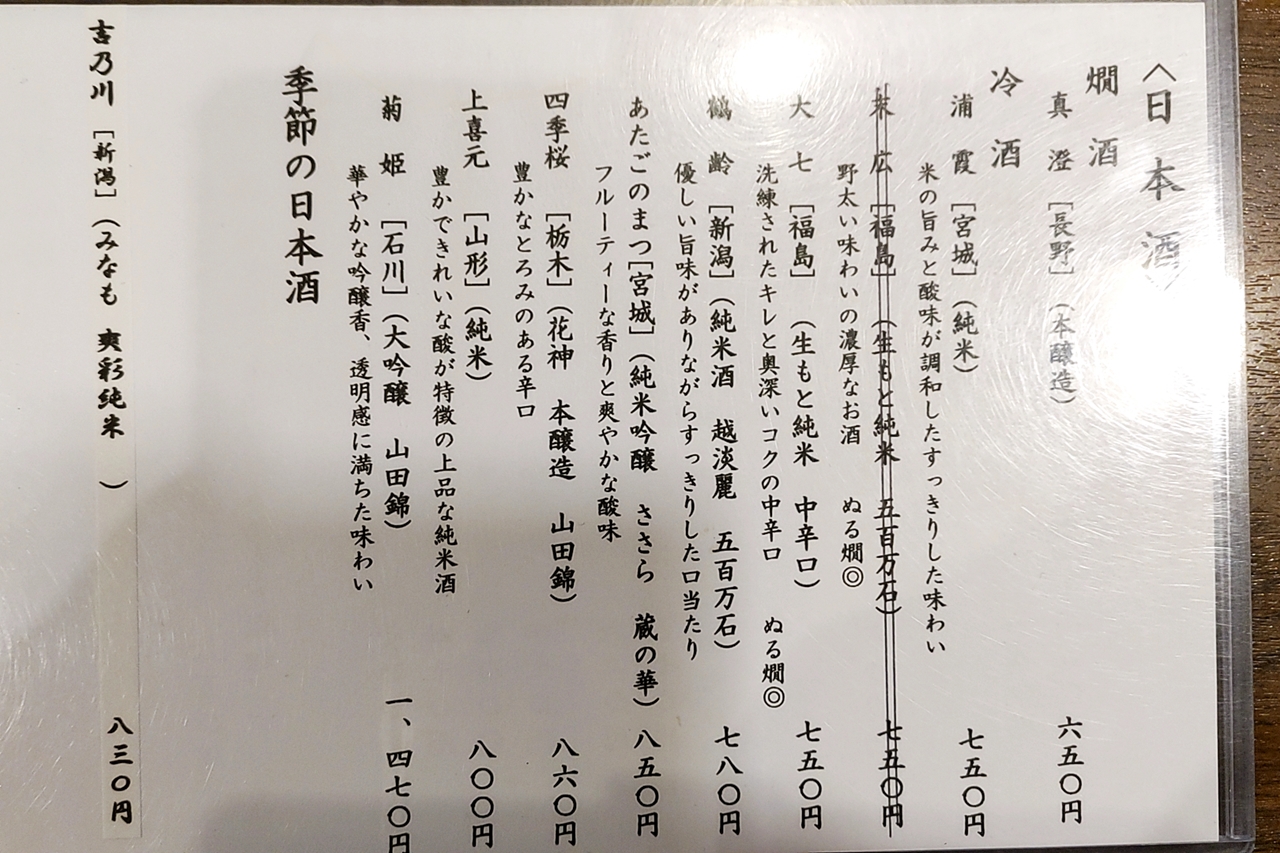 〈日本酒〉
燗酒
真澄 [長野] (本醸造) 六五〇円
冷酒
浦霞 [宮城] (純米) 七五〇円
米の旨みと酸味が調和したすっきりした味わい
末広 [福島] (生もと純米 五百万石) 七五〇円
野太い味わいの濃厚なお酒 ぬる燗◎
大七 [福島] (生もと純米 中辛口) 七五〇円
洗練されたキレと奥深いコクの中辛口 ぬる燗◎
鶴齢 [新潟] (純米酒 越淡麗 五百万石) 七八〇円
優しい旨味がありながらすっきりした口当たり
あたごのまつ [宮城] (純米吟醸 ささら 蔵の華) 八五〇円
フルーティーな香りと爽やかな酸味
四季桜 [栃木] (花神 本醸造 山田錦) 八六〇円
豊かなとろみのある辛口
上喜元 [山形] (純米) 八〇〇円
豊かできれいな酸が特徴の上品な純米酒
菊姫 [石川] (大吟醸 山田錦) 一、四七〇円
華やかな吟醸香、透明感に満ちた味わい
季節の日本酒
吉乃川 [新潟] (みなも 爽彩純米 ) 八三〇円